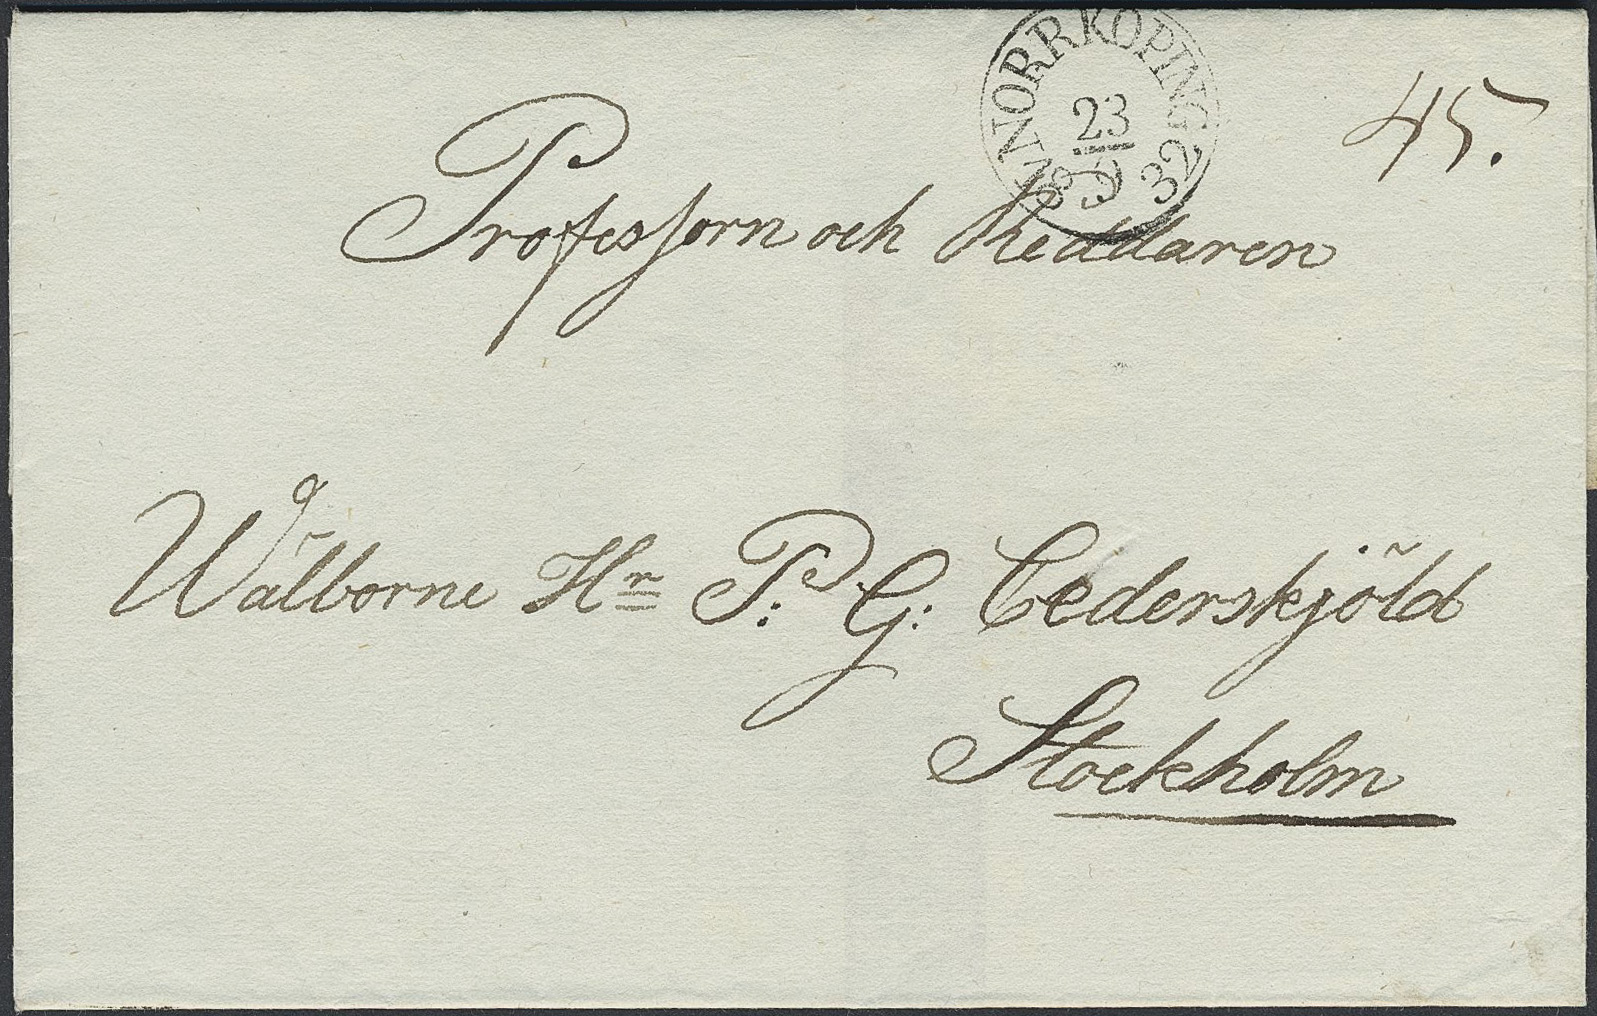 NORRKÖPING
23
9
1832
45.
Professorn och Riddaren
Wälborne Hr P: G: Cederskjöld
Stockholm